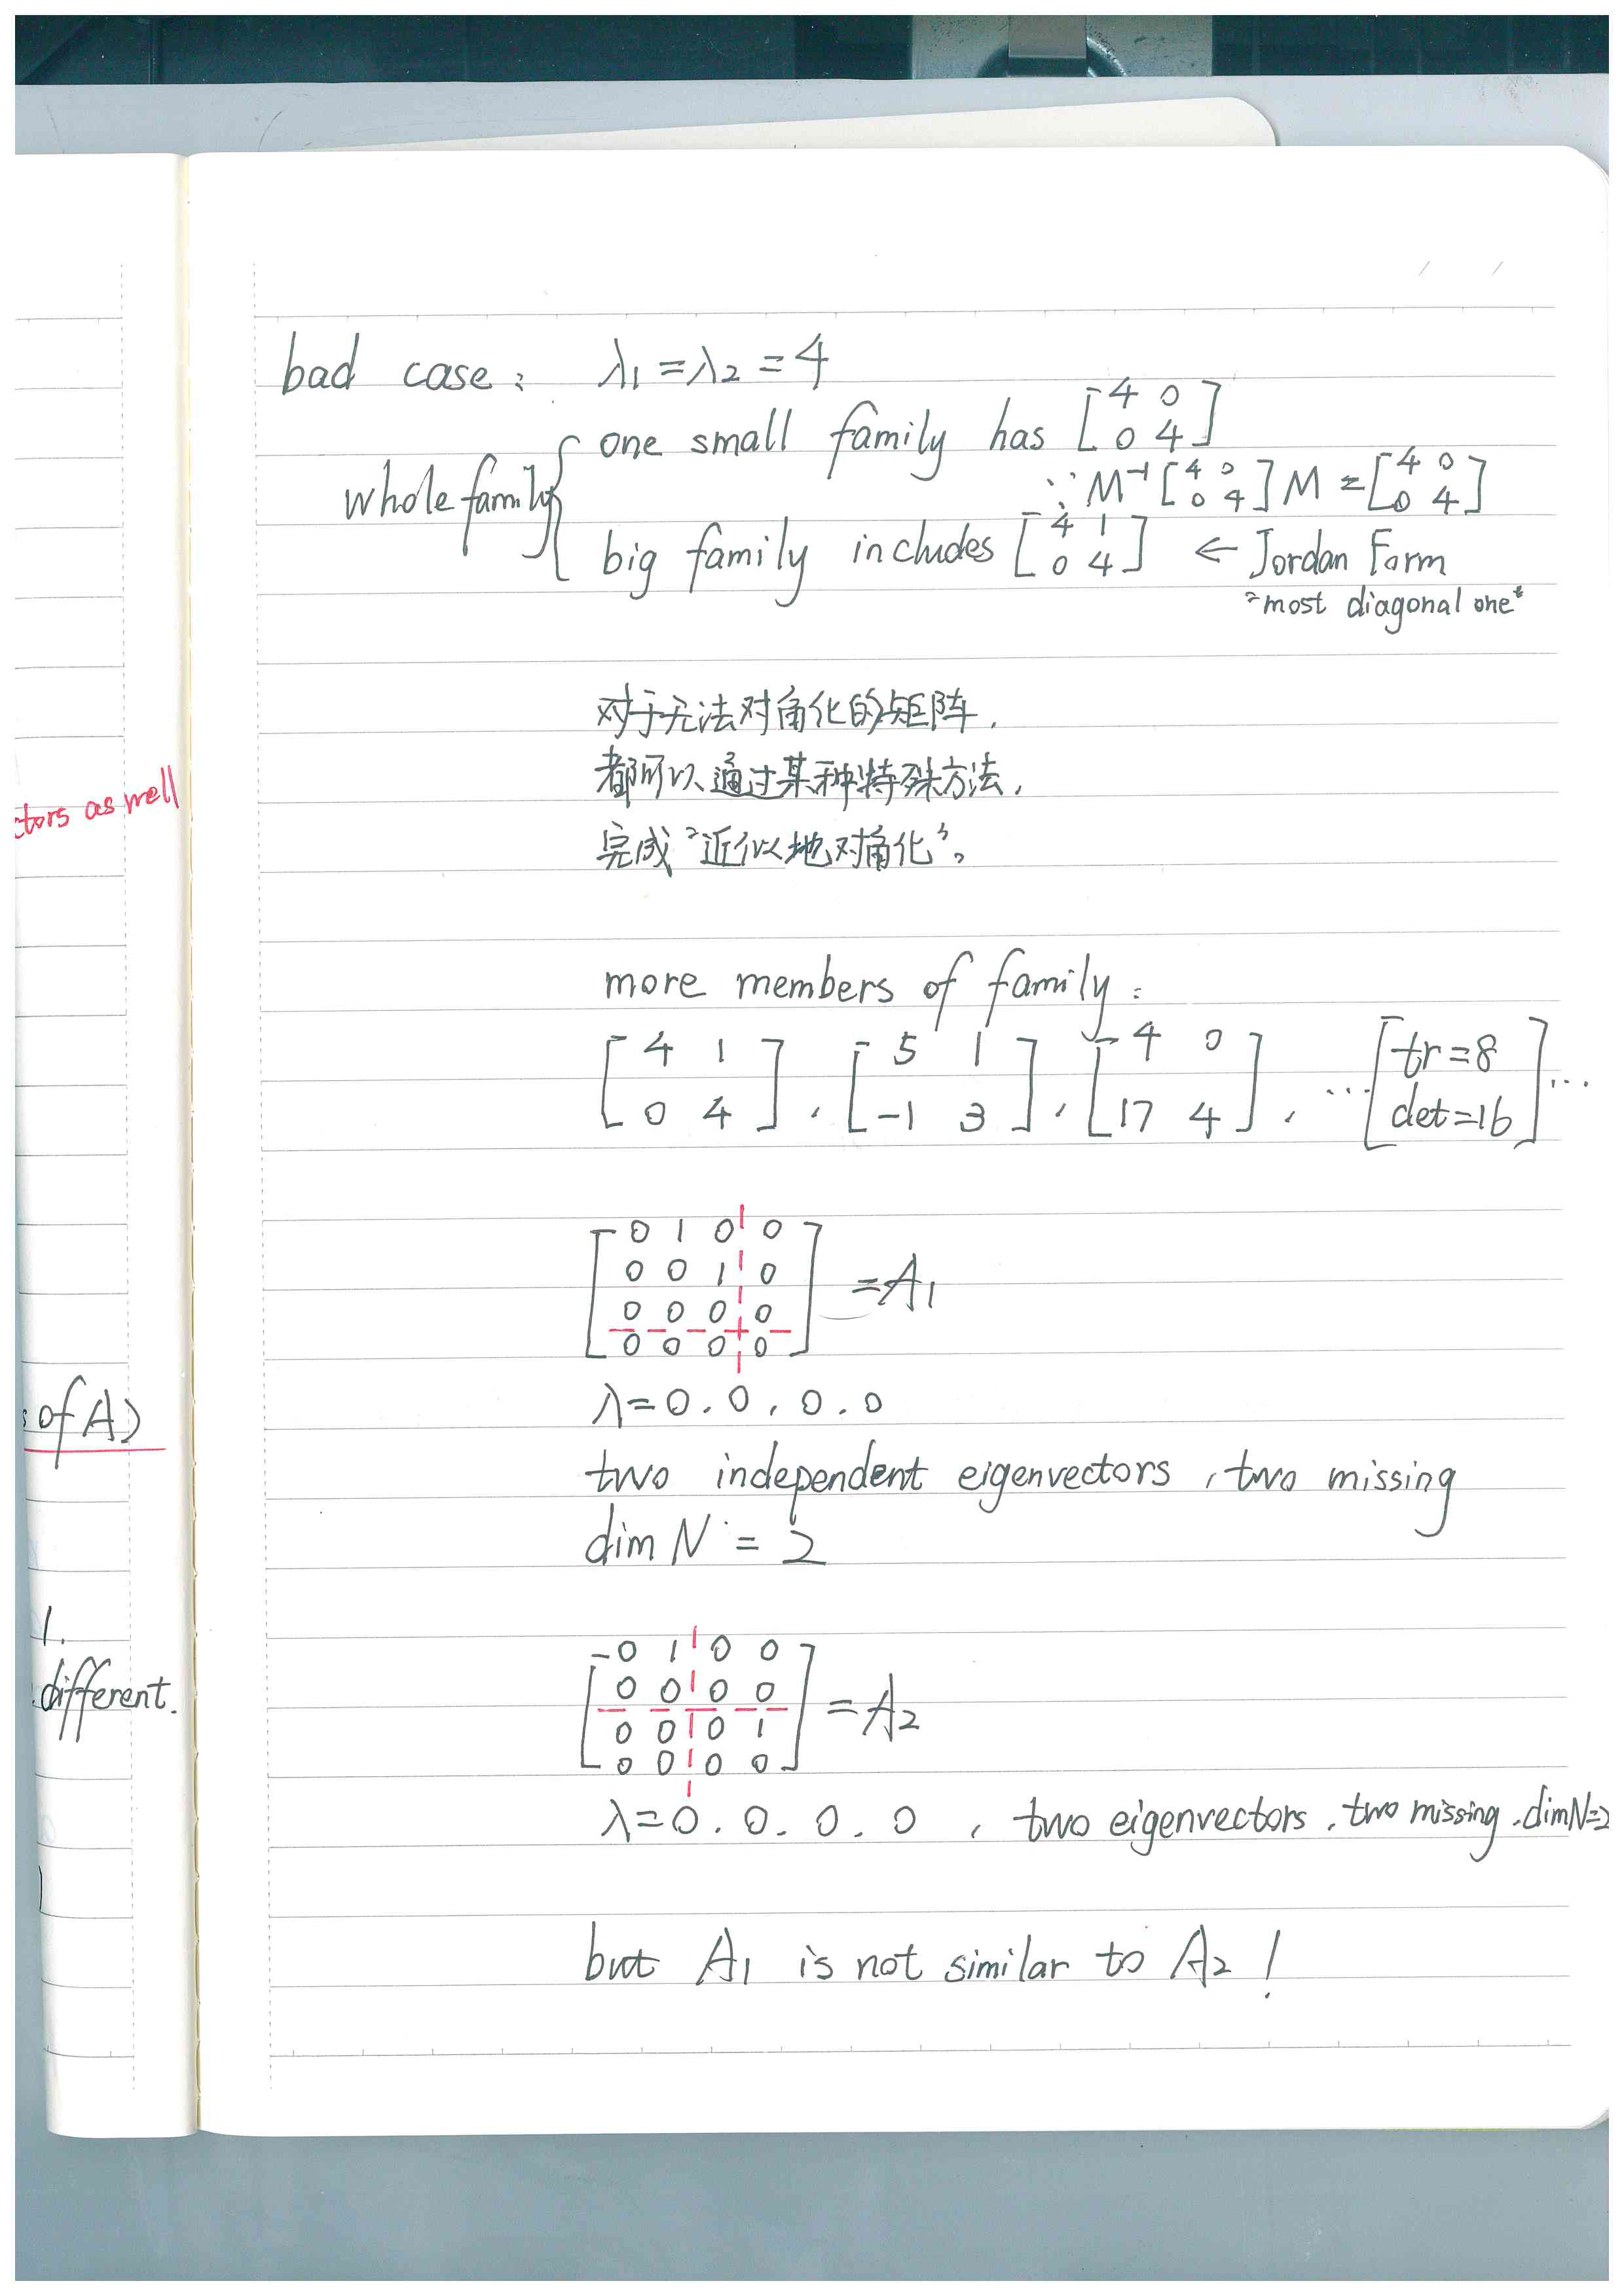 bad case: λ₁ = λ₂ = 4
whole family { one small family has [4 0; 0 4]
∵ M⁻¹ [4 0; 0 4] M = [4 0; 0 4]
big family includes [4 1; 0 4] ← Jordan Form
"most diagonal one"
对于无法对角化的矩阵,
都可以通过某种特殊方法,
完成"近似地对角化"。
ctors as well
more members of family:
[4 1; 0 4], [5 1; -1 3], [4 0; 17 4], ... [tr=8; det=16] ...
[0 1 0 0
0 0 1 0
0 0 0 0
0 0 0 0] = A₁
λ = 0, 0, 0, 0
of A)
two independent eigenvectors, two missing
dim N = 2
1.
different.
[0 1 0 0
0 0 0 0
0 0 0 1
0 0 0 0] = A₂
λ = 0, 0, 0, 0, two eigenvectors, two missing, dim N = 2
but A₁ is not similar to A₂ !